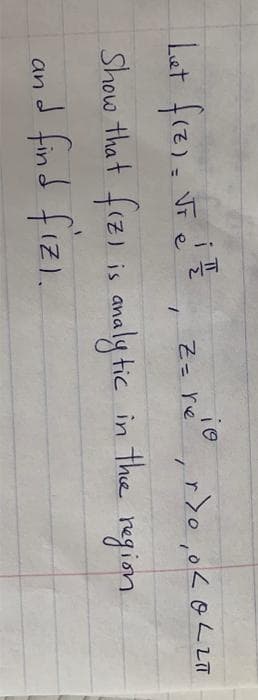 Let f(z) = √r e^{i π/2} , z = re^{iθ} , r>0 , 0<θ<2π
Show that f(z) is analytic in the region
and find f'(z).